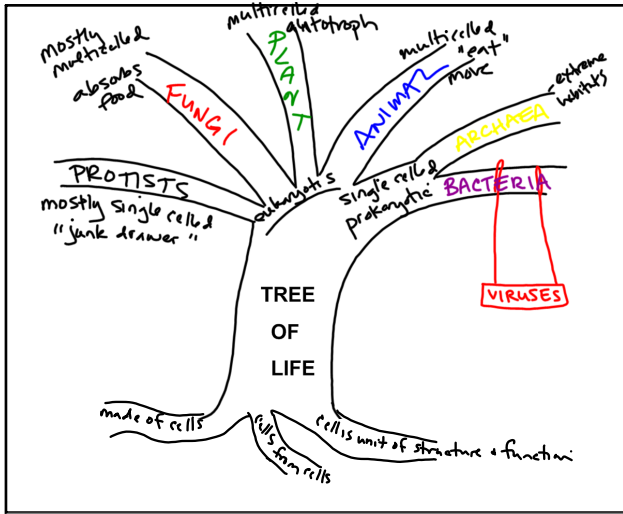 mostly
multicelled
absorbs
food
FUNGI
multicelled
autotroph
PLANT
multicelled
"eat"
move
ANIMAL
extreme
habitats
ARCHAEA
PROTISTS
mostly single celled
"junk drawer"
eukaryotis
single celled
prokaryotic
BACTERIA
VIRUSES
TREE
OF
LIFE
made of cells
cells from cells
cell is unit of structure & function